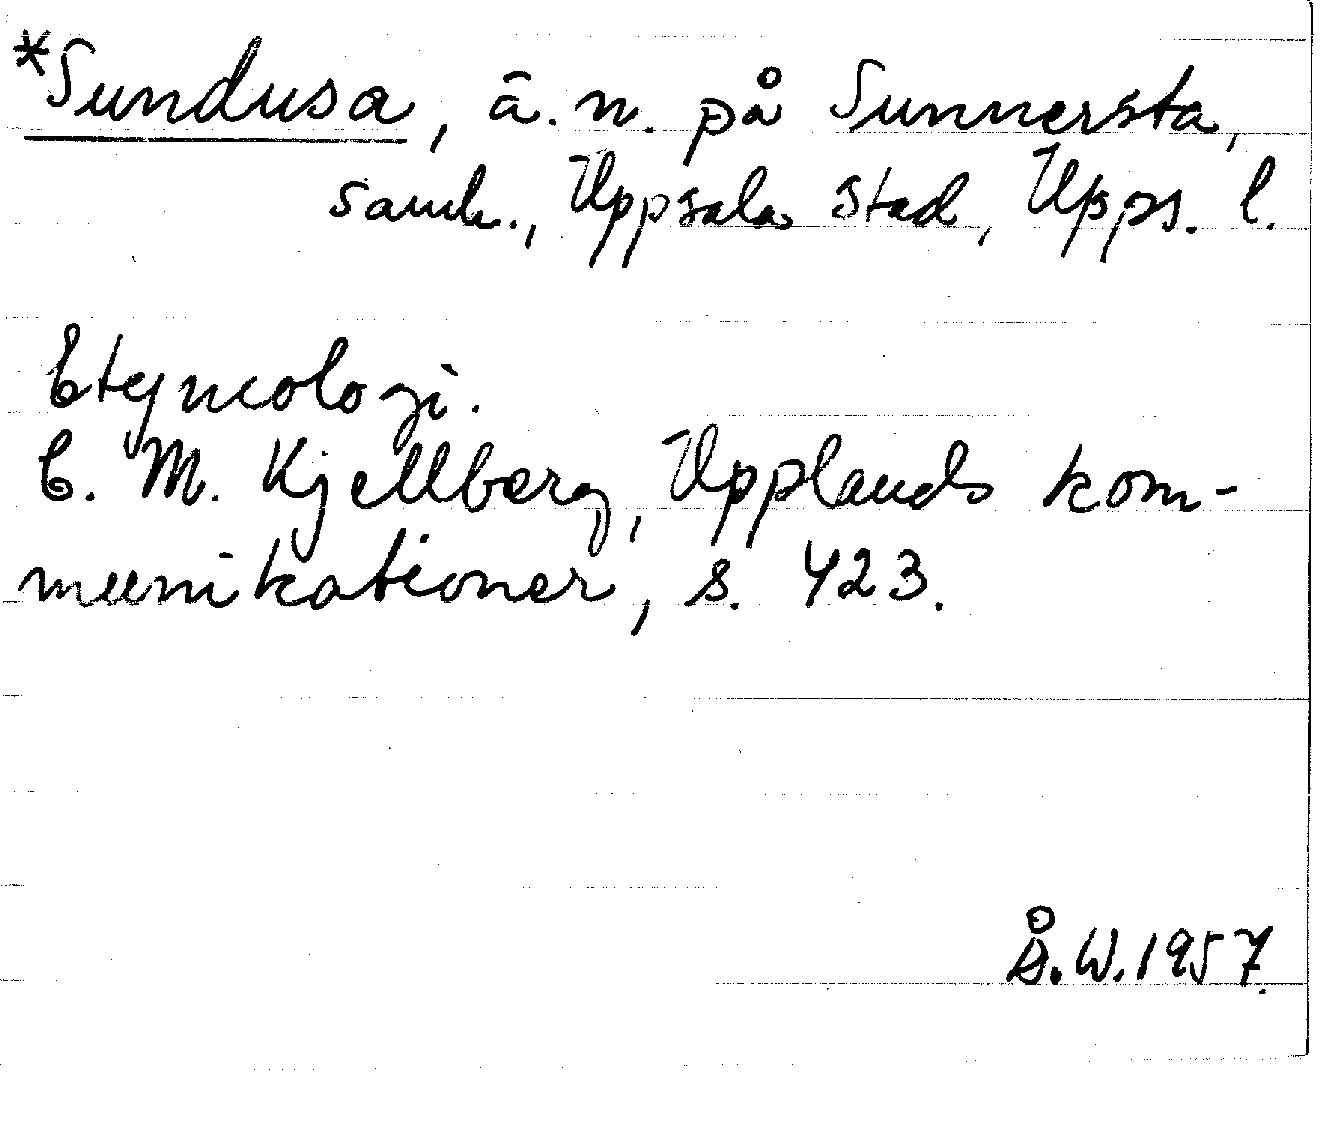 *Sundusa, ä. n. på Sunnersta,
samh., Uppsala stad, Upps. l.
Etymologi.
C. M. Kjellberg, Upplands kom-
munikationer, s. 423.
Å. W. 1957.